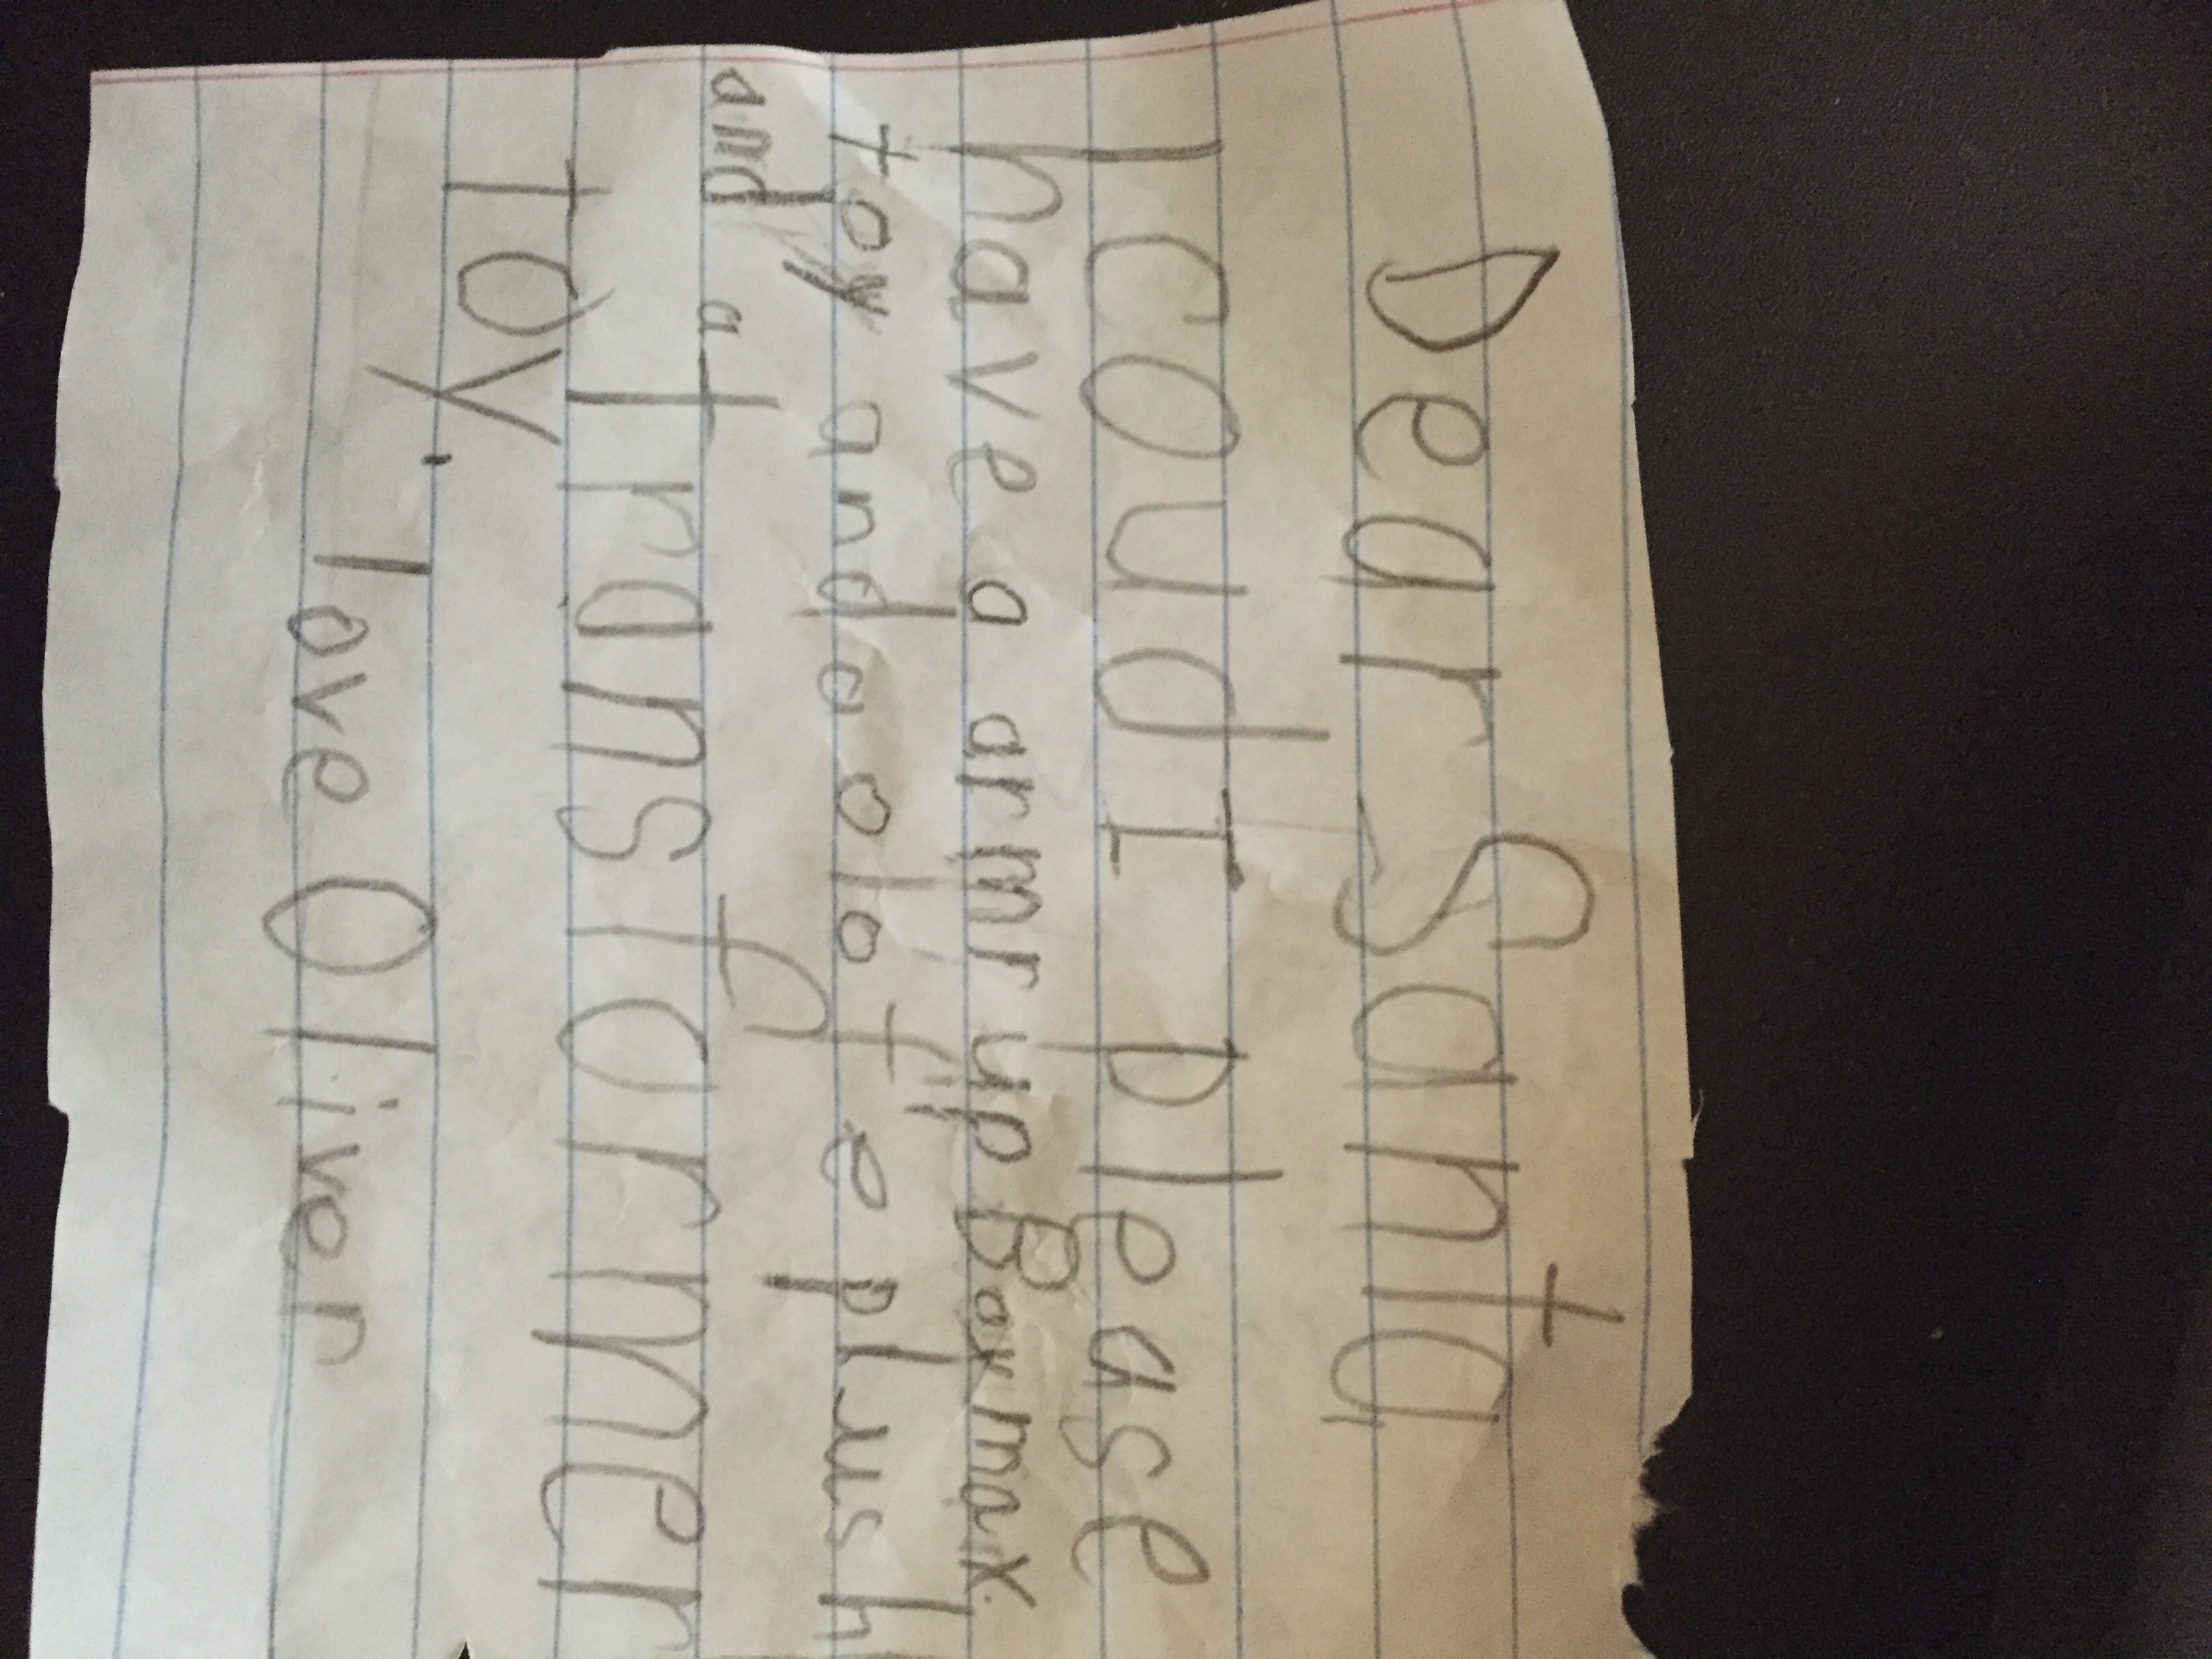 Dear Santa
I coud I please
have a armr up Baymax.
toy and a olofe plush
and a transformer
toy.
love Oliver